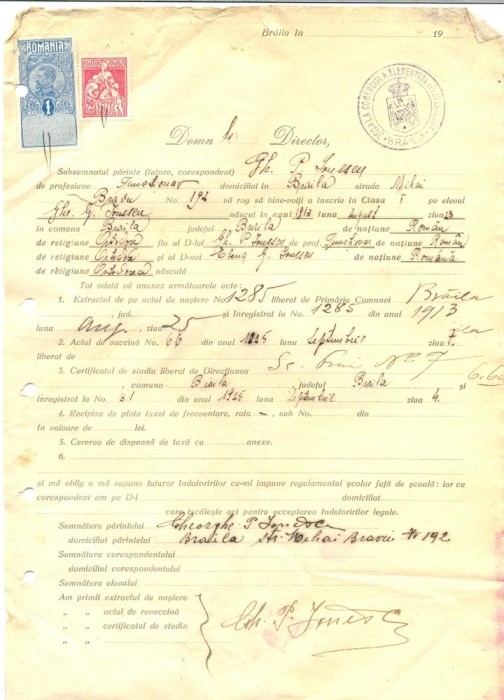 Brăila în 19
ROMANIA
1
ȘCOALA COMERCIALĂ ELEMENTARĂ
BRĂILA
Domnule Director,
Subsemnatul părinte (tutore, corespondent) Gh. P. Ionescu
de profesiune Funcționar domiciliat în Brăila strada Mihai
Bravu No. 192 vă rog să bine-voiți a înscrie în Clasa I pe elevul
Gh. G. Ionescu născut în anul 1913 luna August ziua 23
în comuna Brăila județul Brăila de națiune Român
de religiune Ortodoxă fiu al D-lui Gh. P. Ionescu de prof. Funcționar de națiune Român
de religiune Ortodoxă și al D-nei G. Ionescu de națiune Română
de religiune Ortodoxă născută
Tot odată vă anexez următoarele acte:
1. Extractul de pe actul de naștere No 1285 liberat de Primăria Comunei Brăila
, jud. și înregistrat la No. 1285 din anul 1913
luna Aug. ziua 25
2. Actul de vaccină No 66 din anul 1925 luna Septembrie ziua 7.
liberat de
3. Certificatul de studiu liberat de Direcțiunea Sc. Prim. No. 7
, comuna Brăila, județul Brăila și
înregistrat la No 31 din anul 1925 luna Septembrie ziua 4.
4. Recipisa de plata taxei de frecventare, rata –, sub No. din
în valoare de lei.
5. Cererea de dispensă de taxă cu anexe.
6.
și mă oblig a mă supune tuturor îndatoririlor ce-mi impune regulamentul școlar față de școală: iar ca
corespondent am pe D-l domiciliat
care iscălește aci pentru acceptarea îndatoririlor legale.
Semnătura părintelui Gheorghe P. Ionescu
domiciliul părintelui Braila str. Mihai Bravu No 192
Semnătura corespondentului
domiciliul corespondentului
Semnătura elevului
Am primit extractul de naștere
„ „ actul de revaccină
„ „ certificatul de studiu
„ „
Gh. P. Ionescu